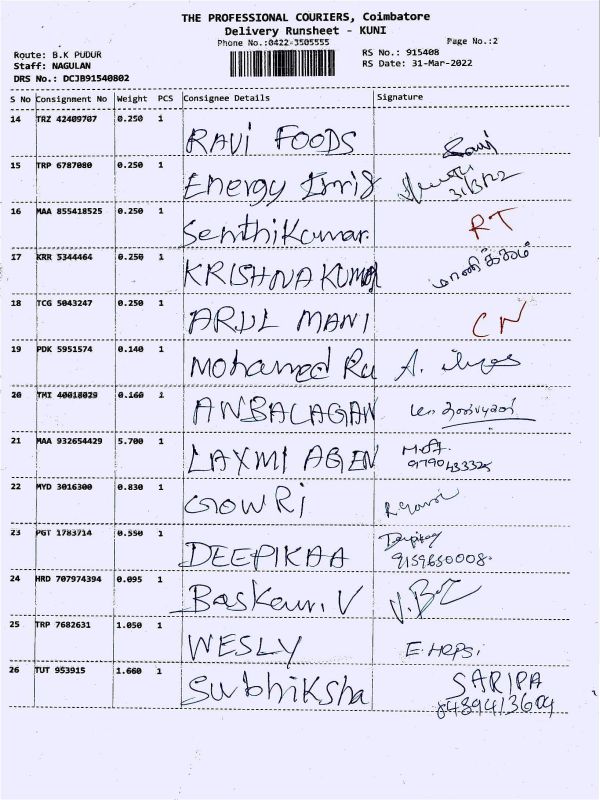 THE PROFESSIONAL COURIERS, Coimbatore
Delivery Runsheet - KUNI
Phone No.:0422-3505555 Page No.:2
Route: B.K PUDUR RS No.: 915408
Staff: NAGULAN RS Date: 31-Mar-2022
DRS No.: DCJB91540802
S No Consignment No Weight PCS Consignee Details Signature
14 TRZ 42409707 0.250 1 RAVI FOODS Ravi
15 TRP 6787080 0.250 1 Energy 31/3/22
16 MAA 855418525 0.250 1 Senthikumar. RT
17 KRR 5344464 0.250 1 KRISHNA KUMAR மாணிக்கம்
18 TCG 5043247 0.250 1 ARUL MANI CN
19 PDK 5951574 0.140 1 Mohamed Ra A.
20 TMI 40018029 0.160 1 ANBALAGAN
21 MAA 932654429 5.700 1 LAXMI AGEN
22 MYD 3016300 0.830 1 GOWRi R Gowri
23 PGT 1783714 0.550 1 DEEPIKAA Deepika
9159650008.
24 HRD 707974394 0.095 1 Baskaran. V V.B
25 TRP 7682631 1.050 1 WESLY E. HEPSi
26 TUT 953915 1.660 1 Subhiksha SARIPA
8489413609